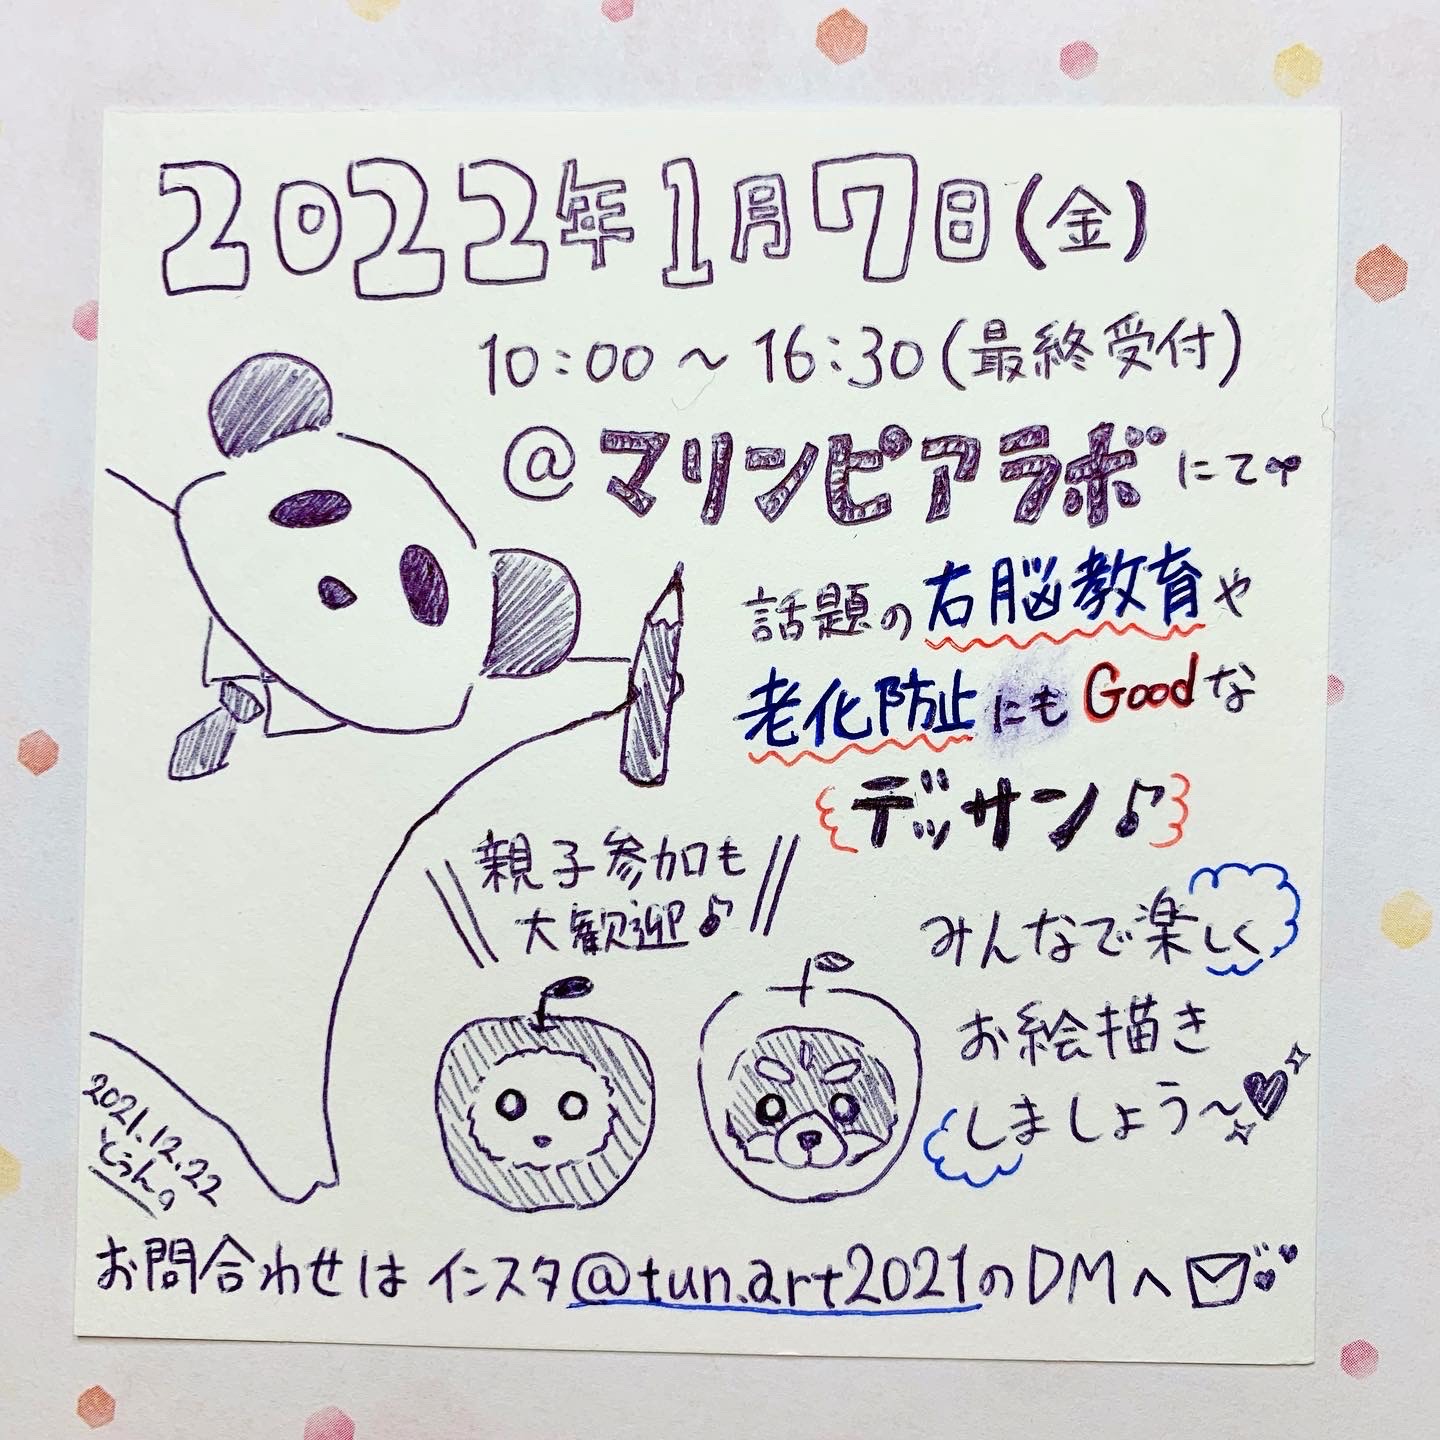 2022年1月7日(金)
10:00～16:30(最終受付)
@マリンピアラボにて
話題の右脳教育や
老化防止にもGoodな
デッサン♪
親子参加も
大歓迎♪
みんなで楽しく
お絵描き
しましょう～
2021.12.22
とぅん。
お問合わせはインスタ@tun.art2021のDMへ